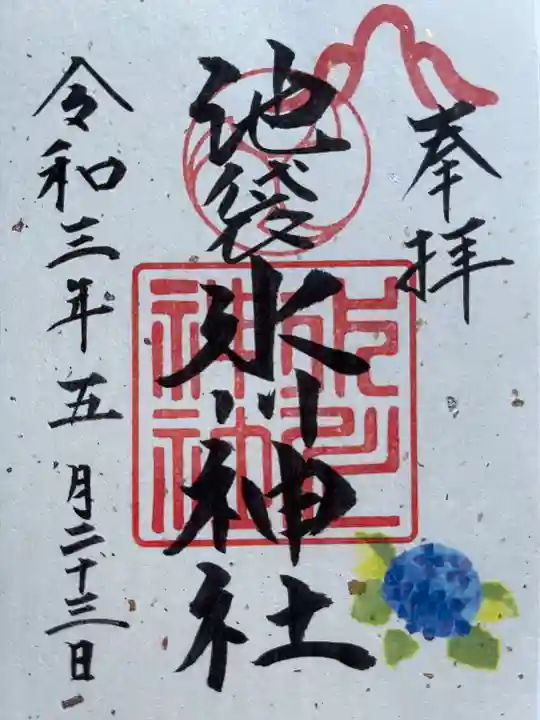 奉拝
池袋氷川神社
氷川
神社
令和三年五月二十三日